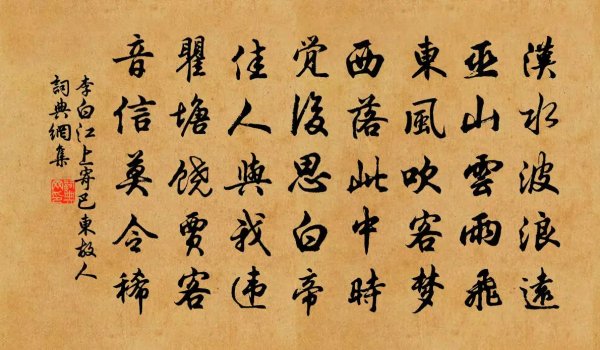 漢水波浪遠
巫山雲雨飛
東風吹客梦
西落此中時
覚後思白帝
佳人與我違
瞿塘饒賈客
音信莫令稀
李白江上寄巴東故人
詞典網集